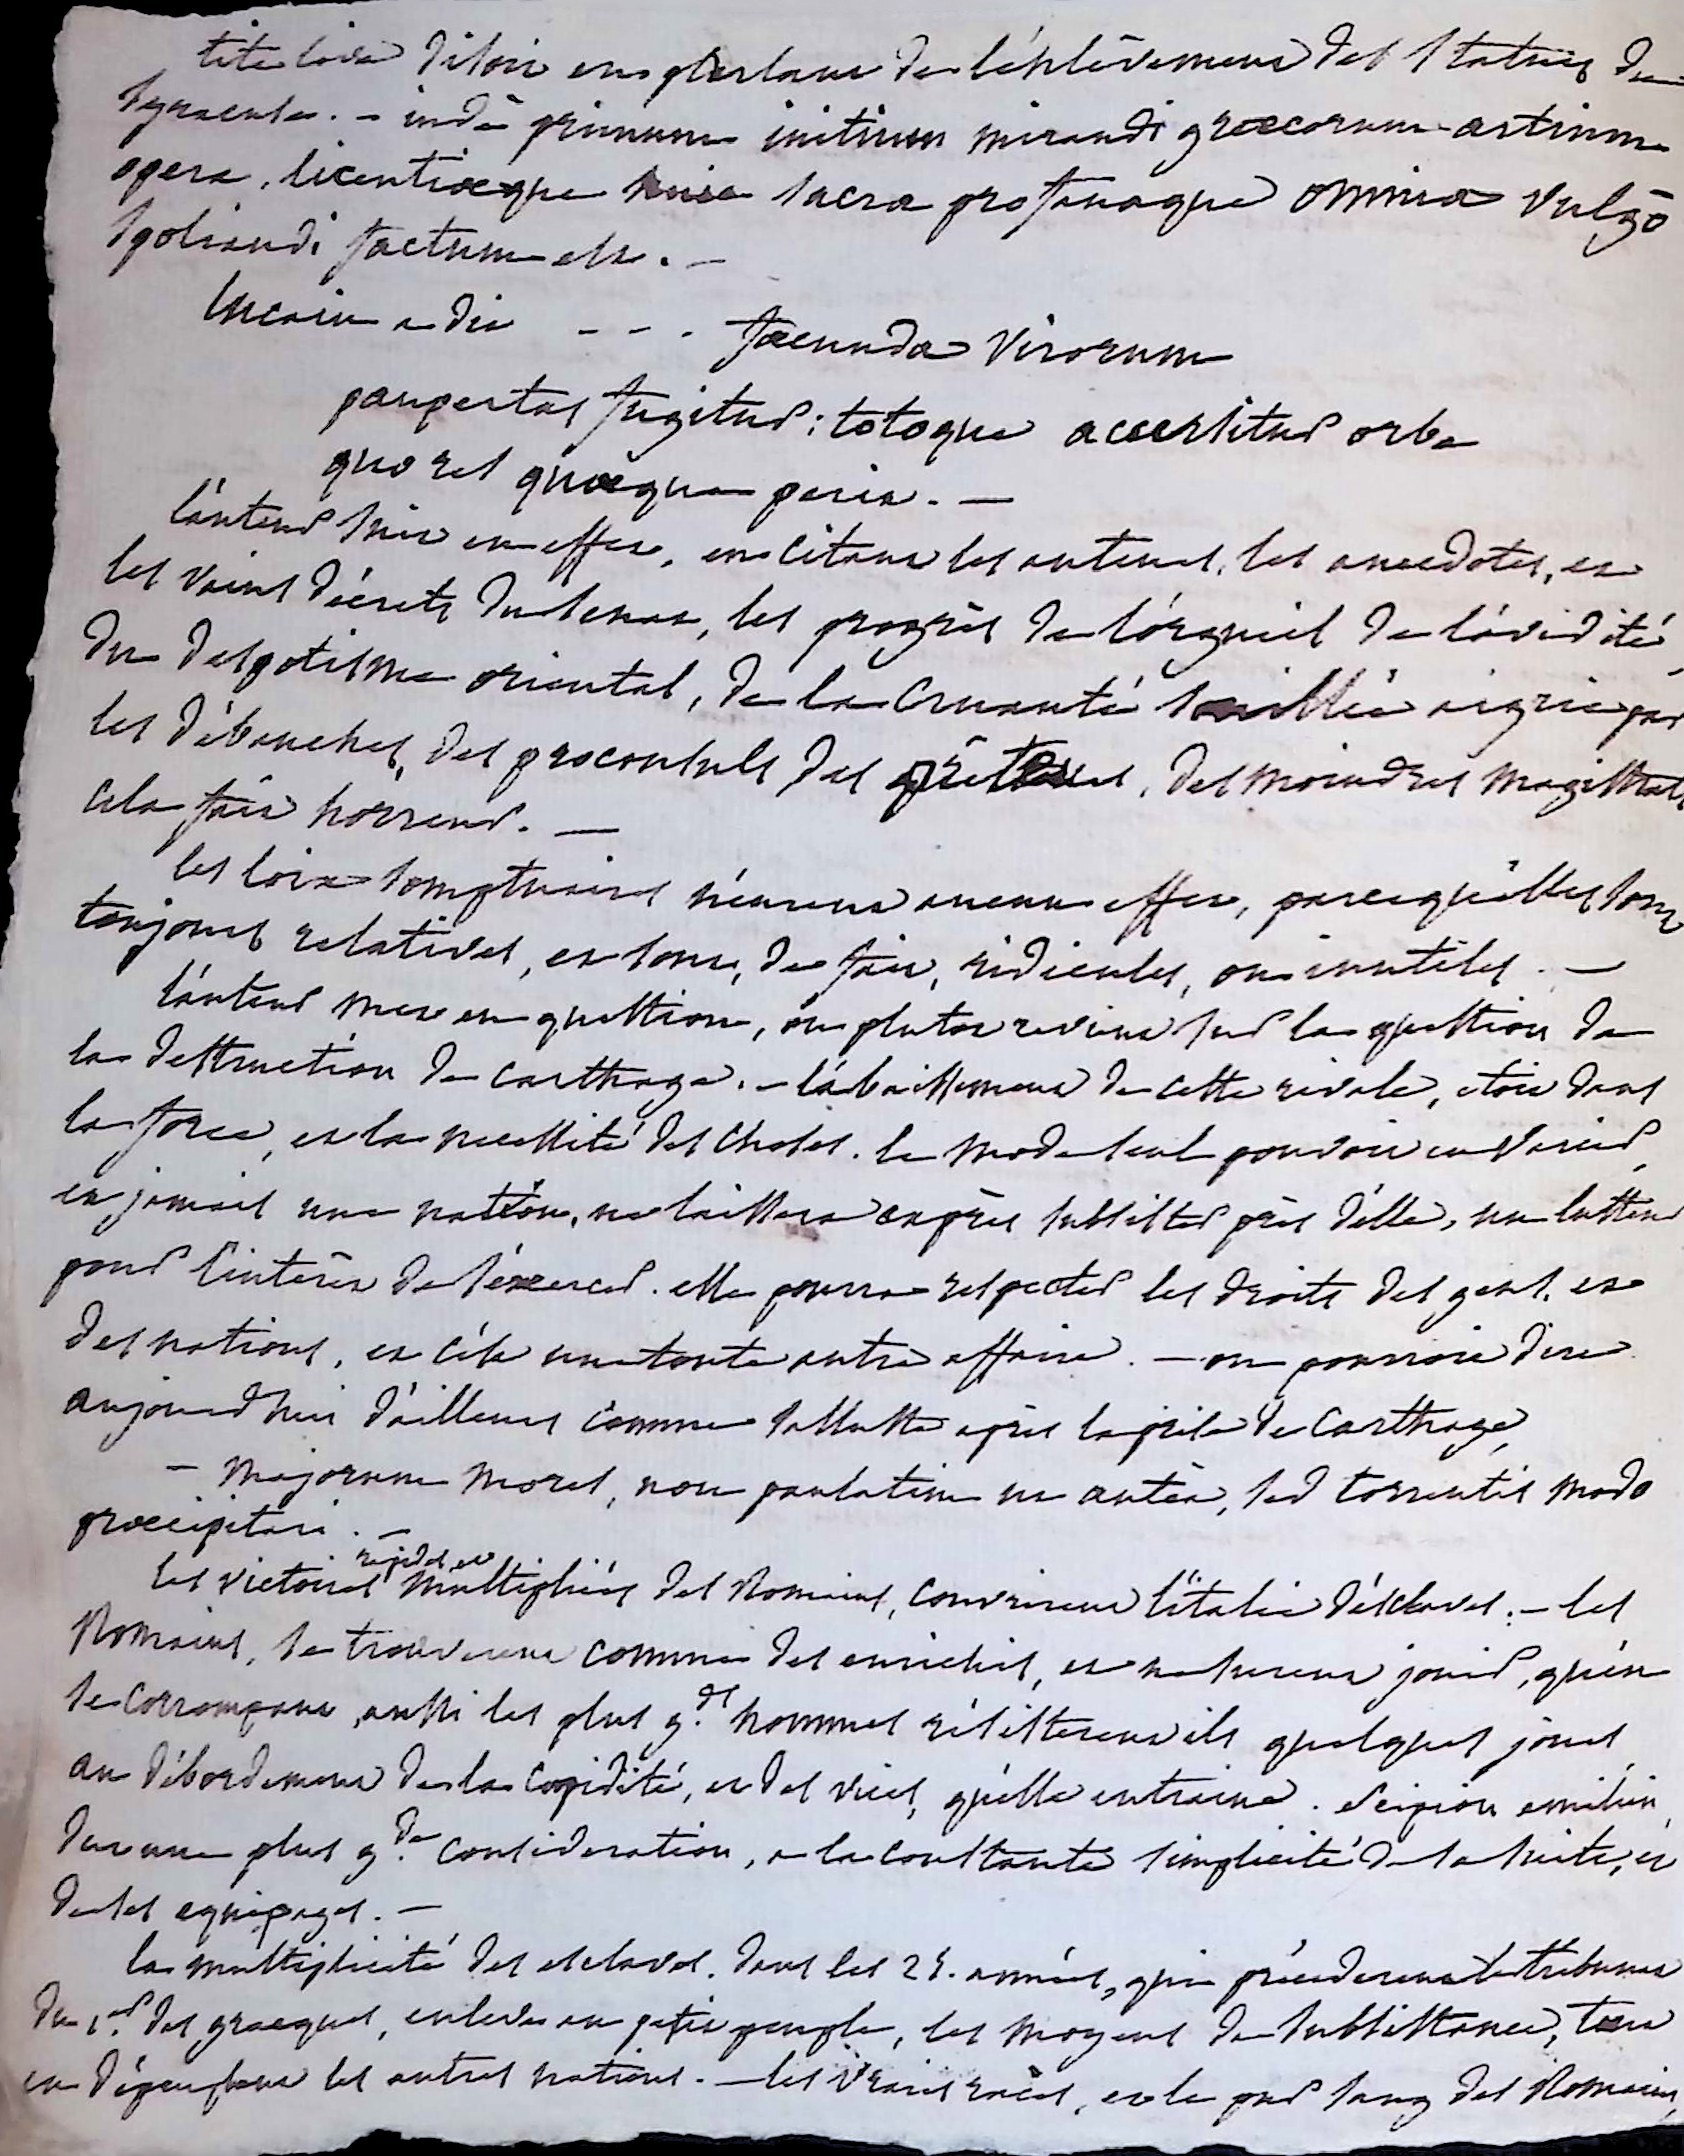 tite live disoit en parlant de l'enlèvement des statues de
Syracuse. – indè primum initium mirandi græcorum artium
opera, licentiæque huic sacra profanaque omnia vulgò
spoliandi factum est. –
Lucain a dit - - - fæcunda virorum
paupertas fugitur; totoque accersitur orbe
quo res quæque perit. –
l'auteur suit en effet, en citant les auteurs, les anecdotes, et
les vains décrets du senat, les progrès de l'orgueil de l'avidité,
du despotisme oriental, de la cruauté aigrie par
les débauches, des proconsuls des préteurs, des moindres magistrats
cela fait horreur. –
les loix somptuaires n'eurent aucun effet, parcequ'elles sont
toujours relatives, et sont, de fait, ridicules, ou inutiles. –
l'auteur met en question, ou plutot revient sur la question de
la destruction de carthage. – l'abaissement de cette rivale, etoit dans
la force, et la necessité des choses. le mode seul pouvoit en varier,
et jamais une nation, ne laissera exprès subsister près d'elle, un lutteur
pour l'interêt de s'exercer. elle pourra respecter les droits des gens, et
des nations, et c'est une toute autre affaire. – on pourroit dire
aujourdhui d'ailleurs comme salluste après la prise de Carthage,
– majorum mores, non paulatim ut antèa, sed torrentis modo
præcipitari. –
les victoires rapides, et multipliées des Romains, couvrirent l'italie d'esclaves. – les
Romains, se trouverent comme des enrichis, et ne surent jouir, qu'en
se corrompant, aussi les plus g.ds hommes résisterent ils quelques jours,
au débordement de la cupidité, et des vices, qu'elle entraine. Scipion emilien,
dut une plus g.de consideration, a la constante simplicité de sa suite, et
de ses equipages. –
la multiplicité des esclaves, dans les 25. années, qui précederent le tribunat
du 1.er des gracques, enleva au petit peuple, les moyens de subsistance, tout
en dépeuplant les autres nations. – les vraies races, et le pur sang des Romains,